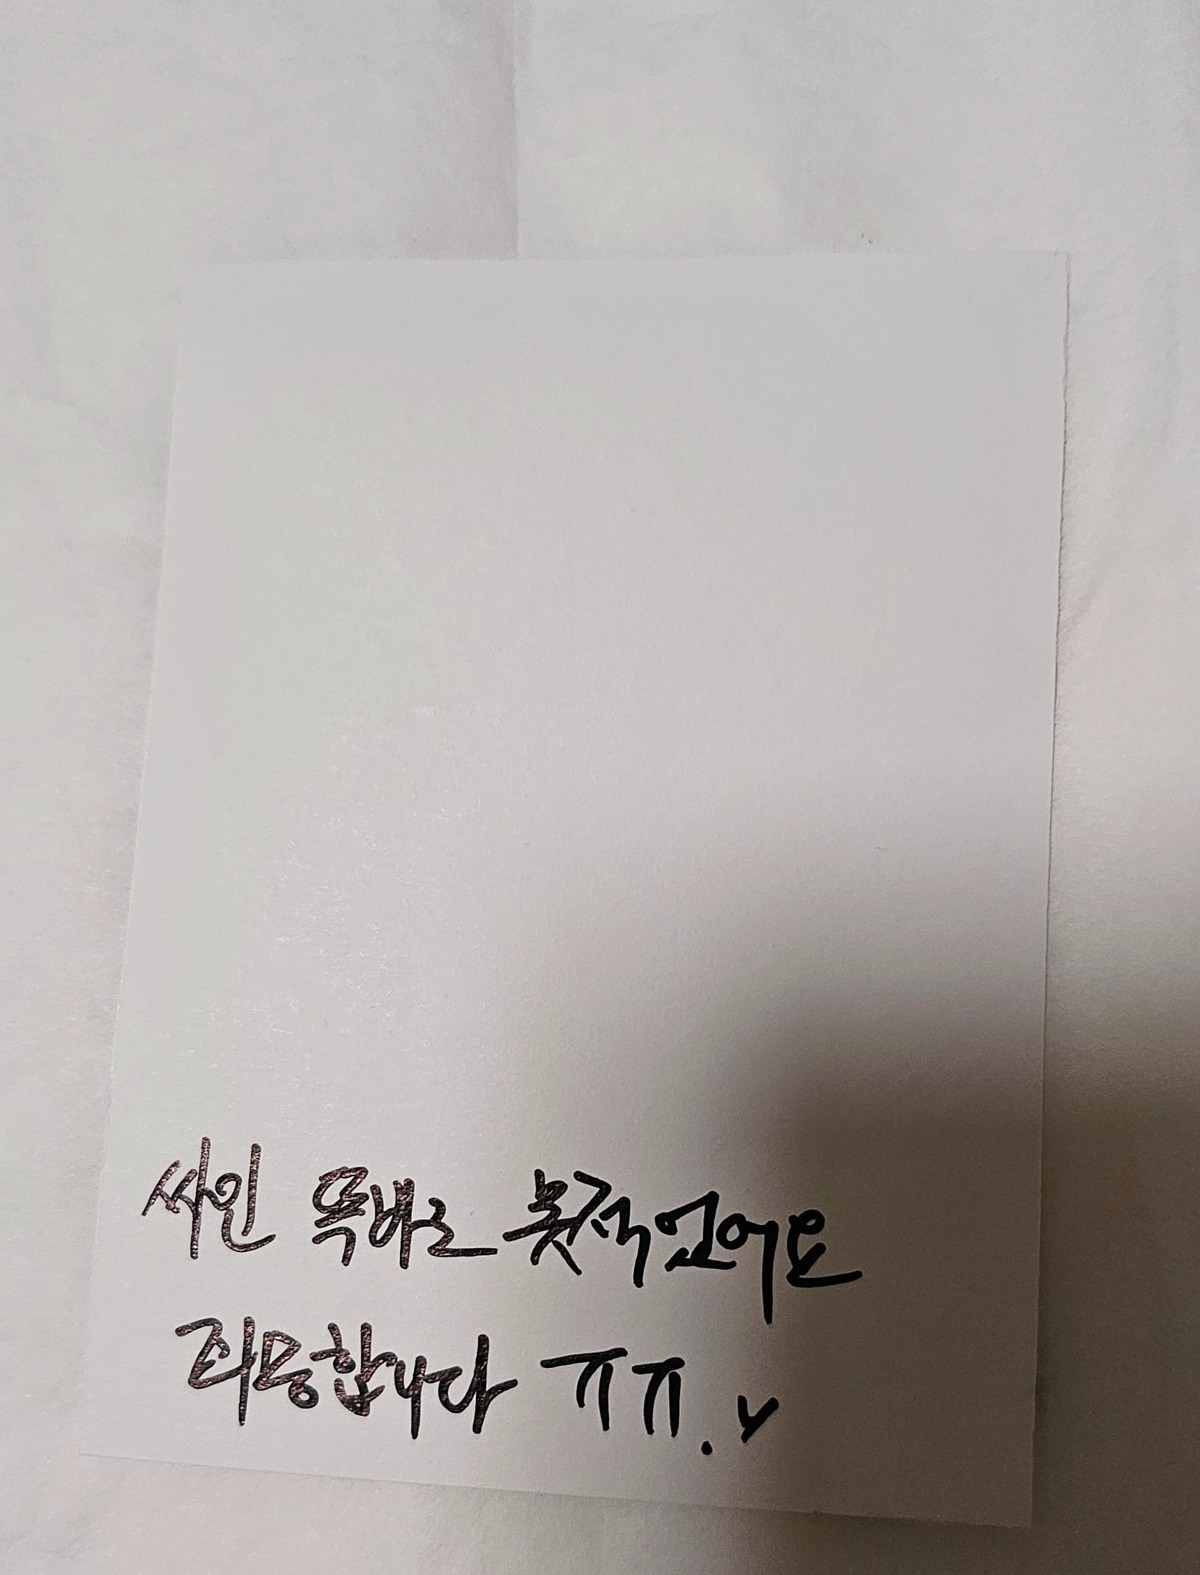 싸인 똑바로 못적었어요
죄송합니다 ㅠㅠ.y